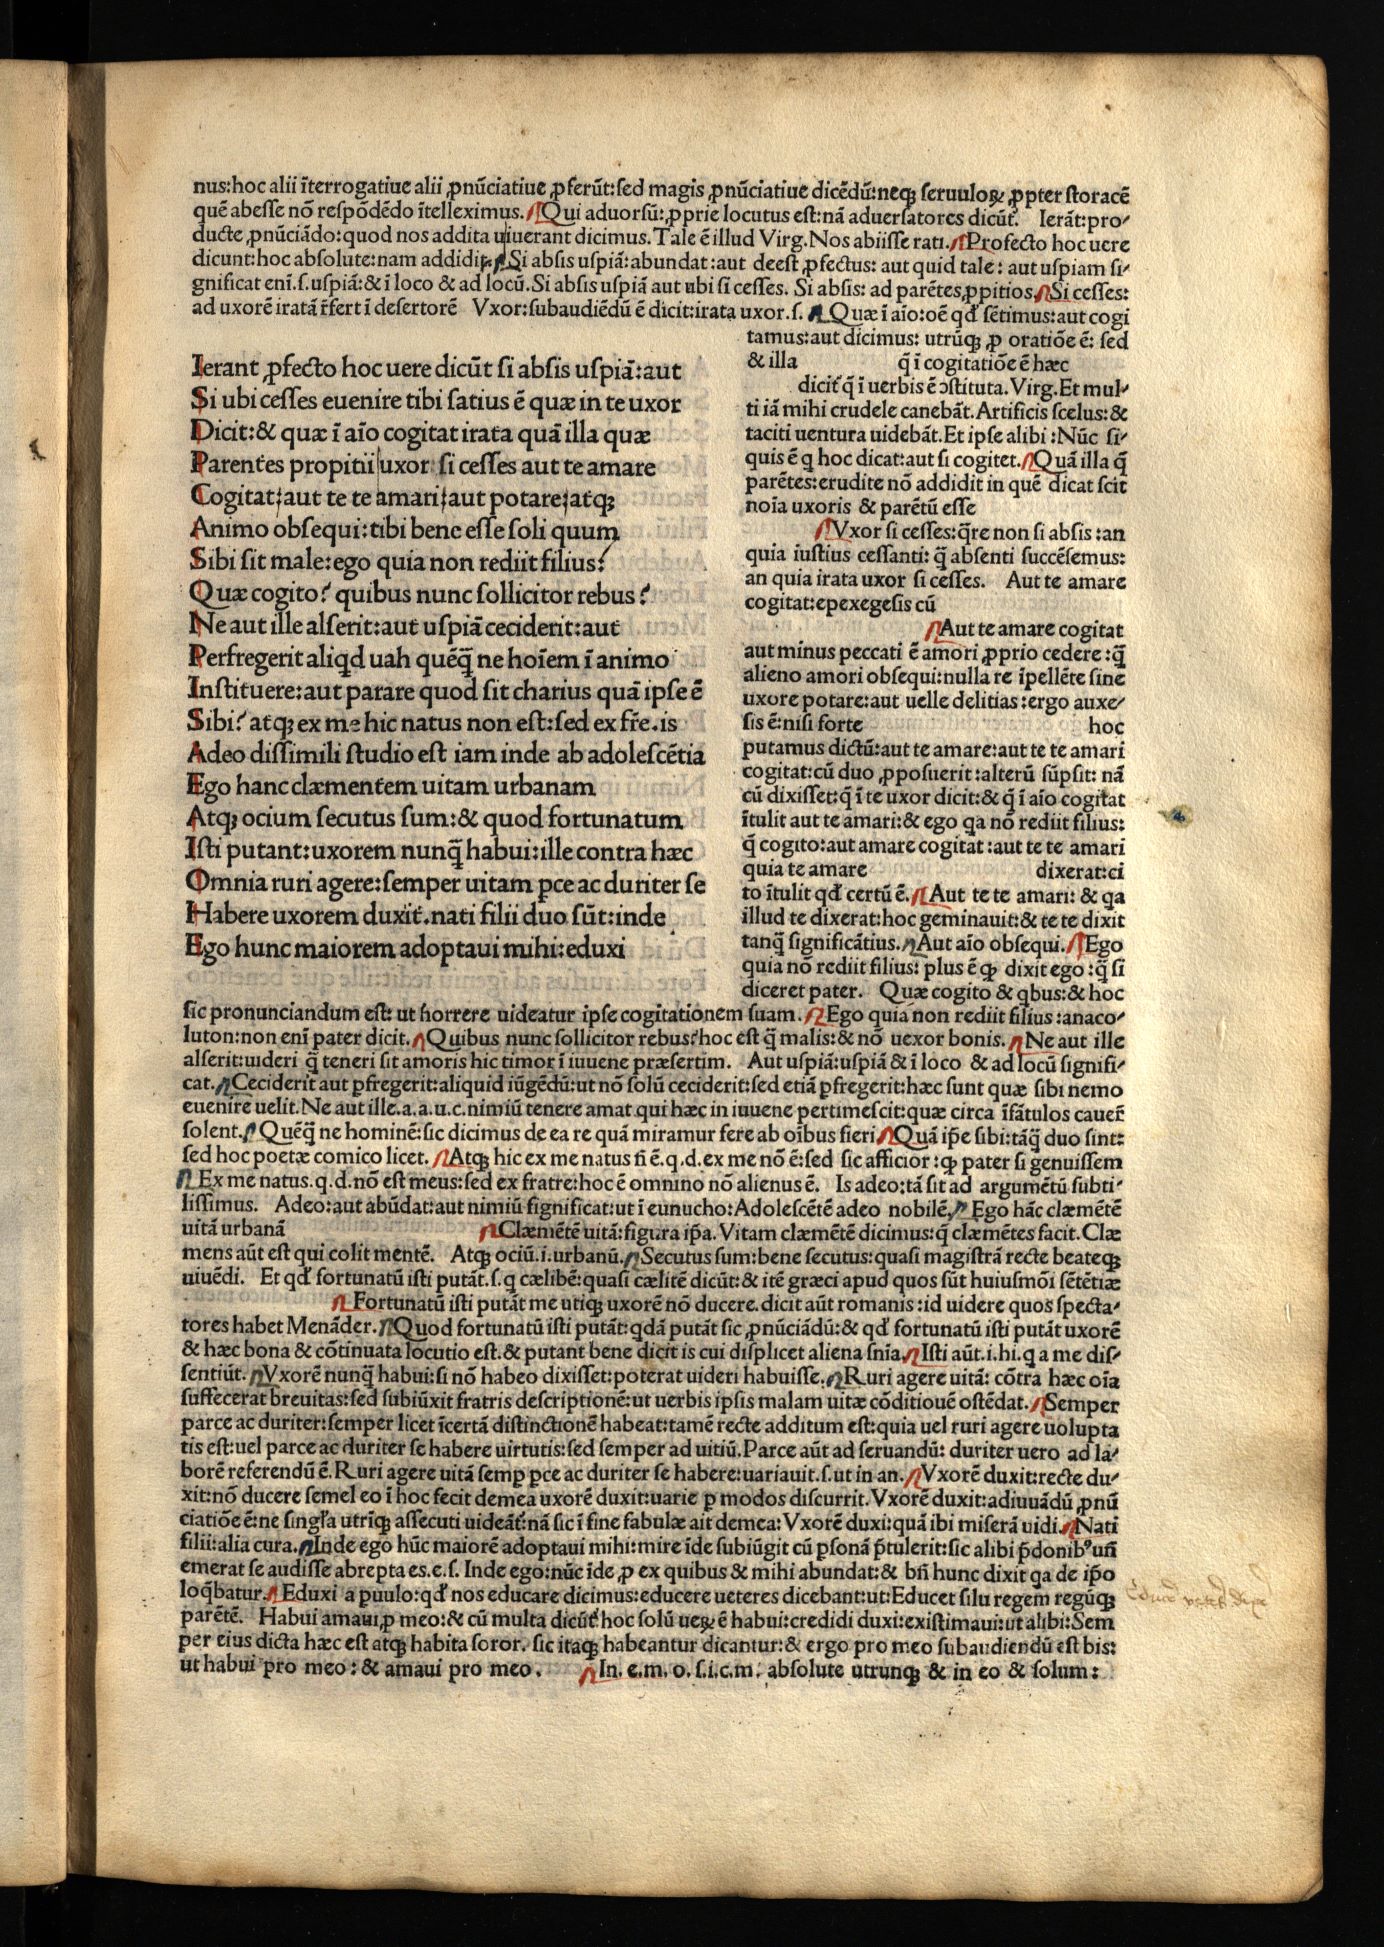 nus:hoc alii ĩterrogatiue alii ꝓnũciatiue ꝓferũt:ſed magis ꝓnũciatiue dicẽdũ:neqꝫ ſeruuloꝝ ꝓpter ſtoracẽ
quẽ abeſſe nõ reſpõdẽdo ĩtelleximus. Qui aduorſũ:ꝓprie locutus eſt:nã aduerſatores dicũt. Ierãt:pro-
ducte ꝓnũciãdo:quod nos addita u iuerant dicimus. Tale ẽ illud Virg. Nos abiiſſe rati. Profecto hoc uere
dicunt:hoc abſolute:nam addidit. Si abſis uſpiã:abundat:aut deeſt ꝓfectus: aut quid tale: aut uſpiam ſi-
gnificat enĩ.ſ.uſpiã:& ĩ loco & ad locũ. Si abſis uſpiã aut ubi ſi ceſſes. Si abſis: ad parẽtes ꝓpitios. Si ceſſes:
ad uxorẽ iratã r̃fert ĩ deſertorẽ Vxor:ſubaudiẽdũ ẽ dicit:irata uxor.ſ. Quæ ĩ aĩo:oẽ qđ ſẽtimus:aut cogi
tamus:aut dicimus: utrũqꝫ ꝓ oratiõe ẽ: ſed
& illa q̃ ĩ cogitatiõe ẽ hæc
dicit̃ q̃ ĩ uerbis ẽ ɔſtituta. Virg. Et mul-
ti iã mihi crudele canebãt. Artificis ſcelus:&
taciti uentura uidebãt. Et ipſe alibi: Nũc ſi-
quis ẽ q hoc dicat:aut ſi cogitet. Quã illa q̃
parẽtes:erudite nõ addidit in quẽ dicat ſcit
noĩa uxoris & parẽtũ eſſe
Vxor ſi ceſſes:q̃re non ſi abſis:an
quia iuſtius ceſſanti: q̃ abſenti ſuccẽſemus:
an quia irata uxor ſi ceſſes. Aut te amare
cogitat:epexegeſis cũ
Aut te amare cogitat
aut minus peccati ẽ amori ꝓprio cedere:q̃
alieno amori obſequi:nulla re ĩpellẽte ſine
uxore potare:aut uelle delitias:ergo auxe-
ſis ẽ:niſi forte hoc
putamus dictũ:aut te amare:aut te te amari
cogitat:cũ duo ꝓpoſuerit:alterũ ſũpſit: nã
cũ dixiſſet:q̃ ĩ te uxor dicit:& q̃ ĩ aĩo cogitat
ĩtulit aut te amari:& ego qa nõ rediit filius:
q̃ cogito:aut amare cogitat:aut te te amari
quia te amare dixerat:ci
to ĩtulit qđ certũ ẽ. Aut te te amari: & qa
illud te dixerat:hoc geminauit:& te te dixit
tanq̃ ſignificãtius. Aut aĩo obſequi. Ego
quia nõ rediit filius: plus ẽ ꝙ dixit ego:q̃ ſi
diceret pater. Quæ cogito & qbus:& hoc
Ierant ꝓfecto hoc uere dicũt ſi abſis uſpiã:aut
Si ubi ceſſes euenire tibi ſatius ẽ quæ in te uxor
Dicit:& quæ ĩ aĩo cogitat irata quã illa quæ
Parentes propitii uxor ſi ceſſes aut te amare
Cogitat aut te te amari aut potare atqꝫ
Animo obſequi:tibi bene eſſe ſoli quum
Sibi ſit male:ego quia non rediit filius?
Quæ cogito? quibus nunc ſollicitor rebus?
Ne aut ille alſerit:aut uſpiã ceciderit:aut
Perfregerit aliqd uah quẽq̃ ne hoĩem ĩ animo
Inſtituere:aut parare quod ſit charius quã ipſe ẽ
Sibi? atqꝫ ex me hic natus non eſt:ſed ex fr̃e.is
Adeo diſſimili ſtudio eſt iam inde ab adoleſcẽtia
Ego hanc clæmentem uitam urbanam
Atqꝫ ocium ſecutus ſum:& quod fortunatum
Iſti putant:uxorem nunq̃ habui:ille contra hæc
Omnia ruri agere:ſemper uitam ꝑce ac duriter ſe
Habere uxorem duxit.nati filii duo ſũt:inde
Ego hunc maiorem adoptaui mihi:eduxi
ſic pronunciandum eſt: ut horrere uideatur ipſe cogitationem ſuam. Ego quia non rediit filius:anaco-
luton:non enĩ pater dicit. Quibus nunc ſollicitor rebus?hoc eſt q̃ malis:& nõ uexor bonis. Ne aut ille
alſerit:uideri q̃ teneri ſit amoris hic timor ĩ iuuene præſertim. Aut uſpiã:uſpiã & ĩ loco & ad locũ ſignifi-
cat. Ceciderit aut ꝑfregerit:aliquid iũgẽdũ:ut nõ ſolũ ceciderit:ſed etiã ꝑfregerit:hæc ſunt quæ ſibi nemo
euenire uelit. Ne aut ille.a.a.u.c.nimiũ tenere amat qui hæc in iuuene pertimeſcit:quæ circa ĩfãtulos cauer̃
ſolent. Quẽq̃ ne hominẽ:ſic dicimus de ea re quã miramur fere ab oĩbus fieri. Quã ip̃e ſibi:tãq̃ duo ſint:
ſed hoc poetæ comico licet. Atqꝫ hic ex me natus ñ ẽ.q.d.ex me nõ ẽ:ſed ſic afficior:ꝙ pater ſi genuiſſem
Ex me natus.q.d.nõ eſt meus:ſed ex fratre:hoc ẽ omnino nõ alienus ẽ. Is adeo:tã ſit ad argumẽtũ ſubti-
liſſimus. Adeo:aut abũdat:aut nimiũ ſignificat:ut ĩ eunucho:Adoleſcẽtẽ adeo nobilẽ. Ego hãc clæmẽtẽ
uitã urbanã Clæmẽtẽ uitã:figura ip̃a. Vitam clæmẽtẽ dicimus:q̃ clæmẽtes facit. Clæ
mens aũt eſt qui colit mentẽ. Atqꝫ ociũ.i.urbanũ. Secutus ſum:bene ſecutus:quaſi magiſtrã recte beateqꝫ
uiuẽdi. Et qđ fortunatũ iſti putãt.ſ.q cælibẽ:quaſi cælitẽ dicũt:& itẽ græci apud quos ſũt huiuſmõi ſẽtẽtiæ
Fortunatũ iſti putãt me utiqꝫ uxorẽ nõ ducere.dicit aũt romanis:id uidere quos ſpecta-
tores habet Menãder. Quod fortunatũ iſti putãt:qdã putãt ſic ꝓnũciãdũ:& qđ fortunatũ iſti putãt uxorẽ
& hæc bona & cõtinuata locutio eſt.& putant bene dicit is cui diſplicet aliena ſnĩa. Iſti aũt.i.hi.q a me diſ-
ſentiũt. Vxorẽ nunq̃ habui:ſi nõ habeo dixiſſet:poterat uideri habuiſſe. Ruri agere uitã: cõtra hæc oĩa
ſuffecerat breuitas:ſed ſubiũxit fratris deſcriptionẽ:ut uerbis ipſis malam uitæ cõditiouẽ oſtẽdat. Semper
parce ac duriter:ſemper licet ĩcertã diſtinctionẽ habeat:tamẽ recte additum eſt:quia uel ruri agere uolupta
tis eſt:uel parce ac duriter ſe habere uirtutis:ſed ſemper ad uitiũ. Parce aũt ad ſeruandũ: duriter uero ad la-
borẽ referendũ ẽ. Ruri agere uitã ſemꝑ ꝑce ac duriter ſe habere:uariauit.ſ.ut in an. Vxorẽ duxit:recte du-
xit:nõ ducere ſemel eo ĩ hoc fecit demea uxorẽ duxit:uarie ꝑ modos diſcurrit. Vxorẽ duxit:adiuuãdũ ꝓnũ
ciatiõe ẽ:ne ſingl̃a utrĩqꝫ aſſecuti uideãt̃:nã ſic ĩ fine fabulæ ait demea: Vxorẽ duxi:quã ibi miſerã uidi. Nati
filii:alia cura. Inde ego hũc maiorẽ adoptaui mihi:mire ĩde ſubiũgit cũ ꝑſonã p̃tulerit:ſic alibi p̃donibꝰ uñ
emerat ſe audiſſe abrepta es.e.ſ. Inde ego:nũc ĩde ꝓ ex quibus & mihi abundat:& bñ hunc dixit qa de ip̃o
loq̃batur. Eduxi a puulo:qđ nos educare dicimus:educere ueteres dicebant:ut:Educet ſilu regem regũqꝫ
parẽtẽ. Habui amaui ꝓ meo:& cũ multa dicũt̃ hoc ſolũ ueꝝ ẽ habui:credidi duxi:exiſtimaui:ut alibi:Sem
per eius dicta hæc eſt atqꝫ habita ſoror. ſic itaqꝫ habeantur dicantur:& ergo pro meo ſubaudiendũ eſt bis:
ut habui pro meo: & amaui pro meo. In. e.m. o. ſ.i.c.m. abſolute utrunqꝫ & in eo & ſolum: